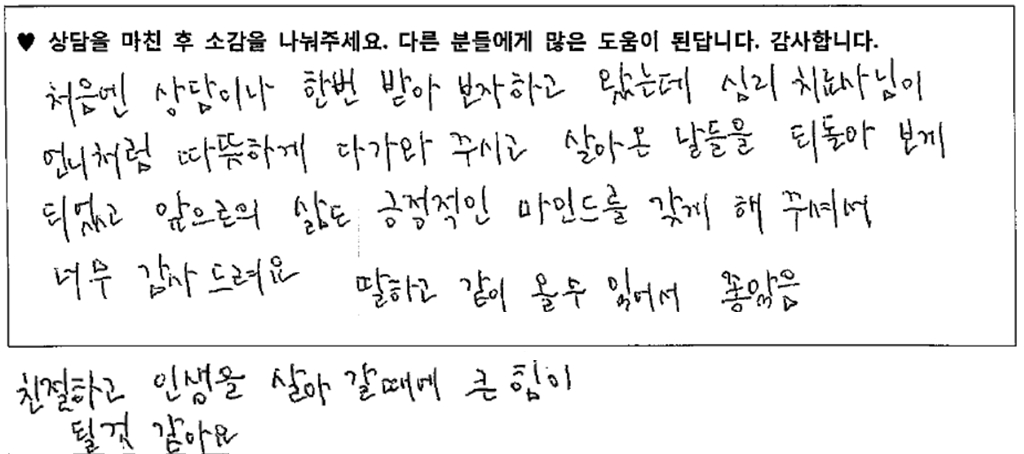 ♥ 상담을 마친 후 소감을 나눠주세요. 다른 분들에게 많은 도움이 된답니다. 감사합니다.
처음엔 상담이나 한번 받아 보자하고 왔는데 심리 치료사님이
언니처럼 따뜻하게 다가와 주시고 살아온 날들을 되돌아 보게
되었고 앞으로의 삶도 긍정적인 마인드를 갖게 해 주셔서
너무 감사 드려요 딸하고 같이 올수 있어서 좋았음
친절하고 인생을 살아 갈때에 큰 힘이
될것 같아요